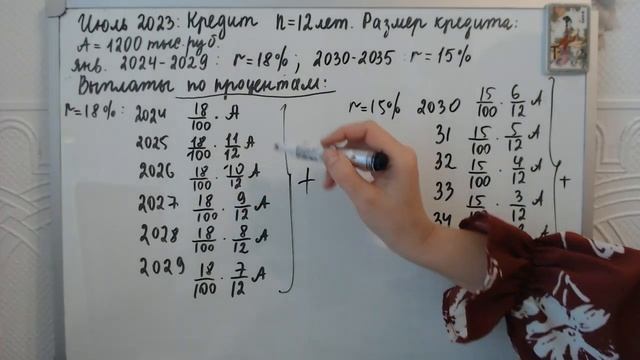 Июль 2023: Кредит n=12 лет. Размер кредита:
A = 1200 тыс. руб.
янв. 2024-2029: r=18%; 2030-2035: r=15%
Выплаты по процентам:
r=18%: 2024 18/100 · A
2025 18/100 · 11/12 A
2026 18/100 · 10/12 A
2027 18/100 · 9/12 A
2028 18/100 · 8/12 A
2029 18/100 · 7/12 A
+
r=15% 2030 15/100 · 6/12 A
31 15/100 · 5/12 A
32 15/100 · 4/12 A
33 15/100 · 3/12 A
34 A
+